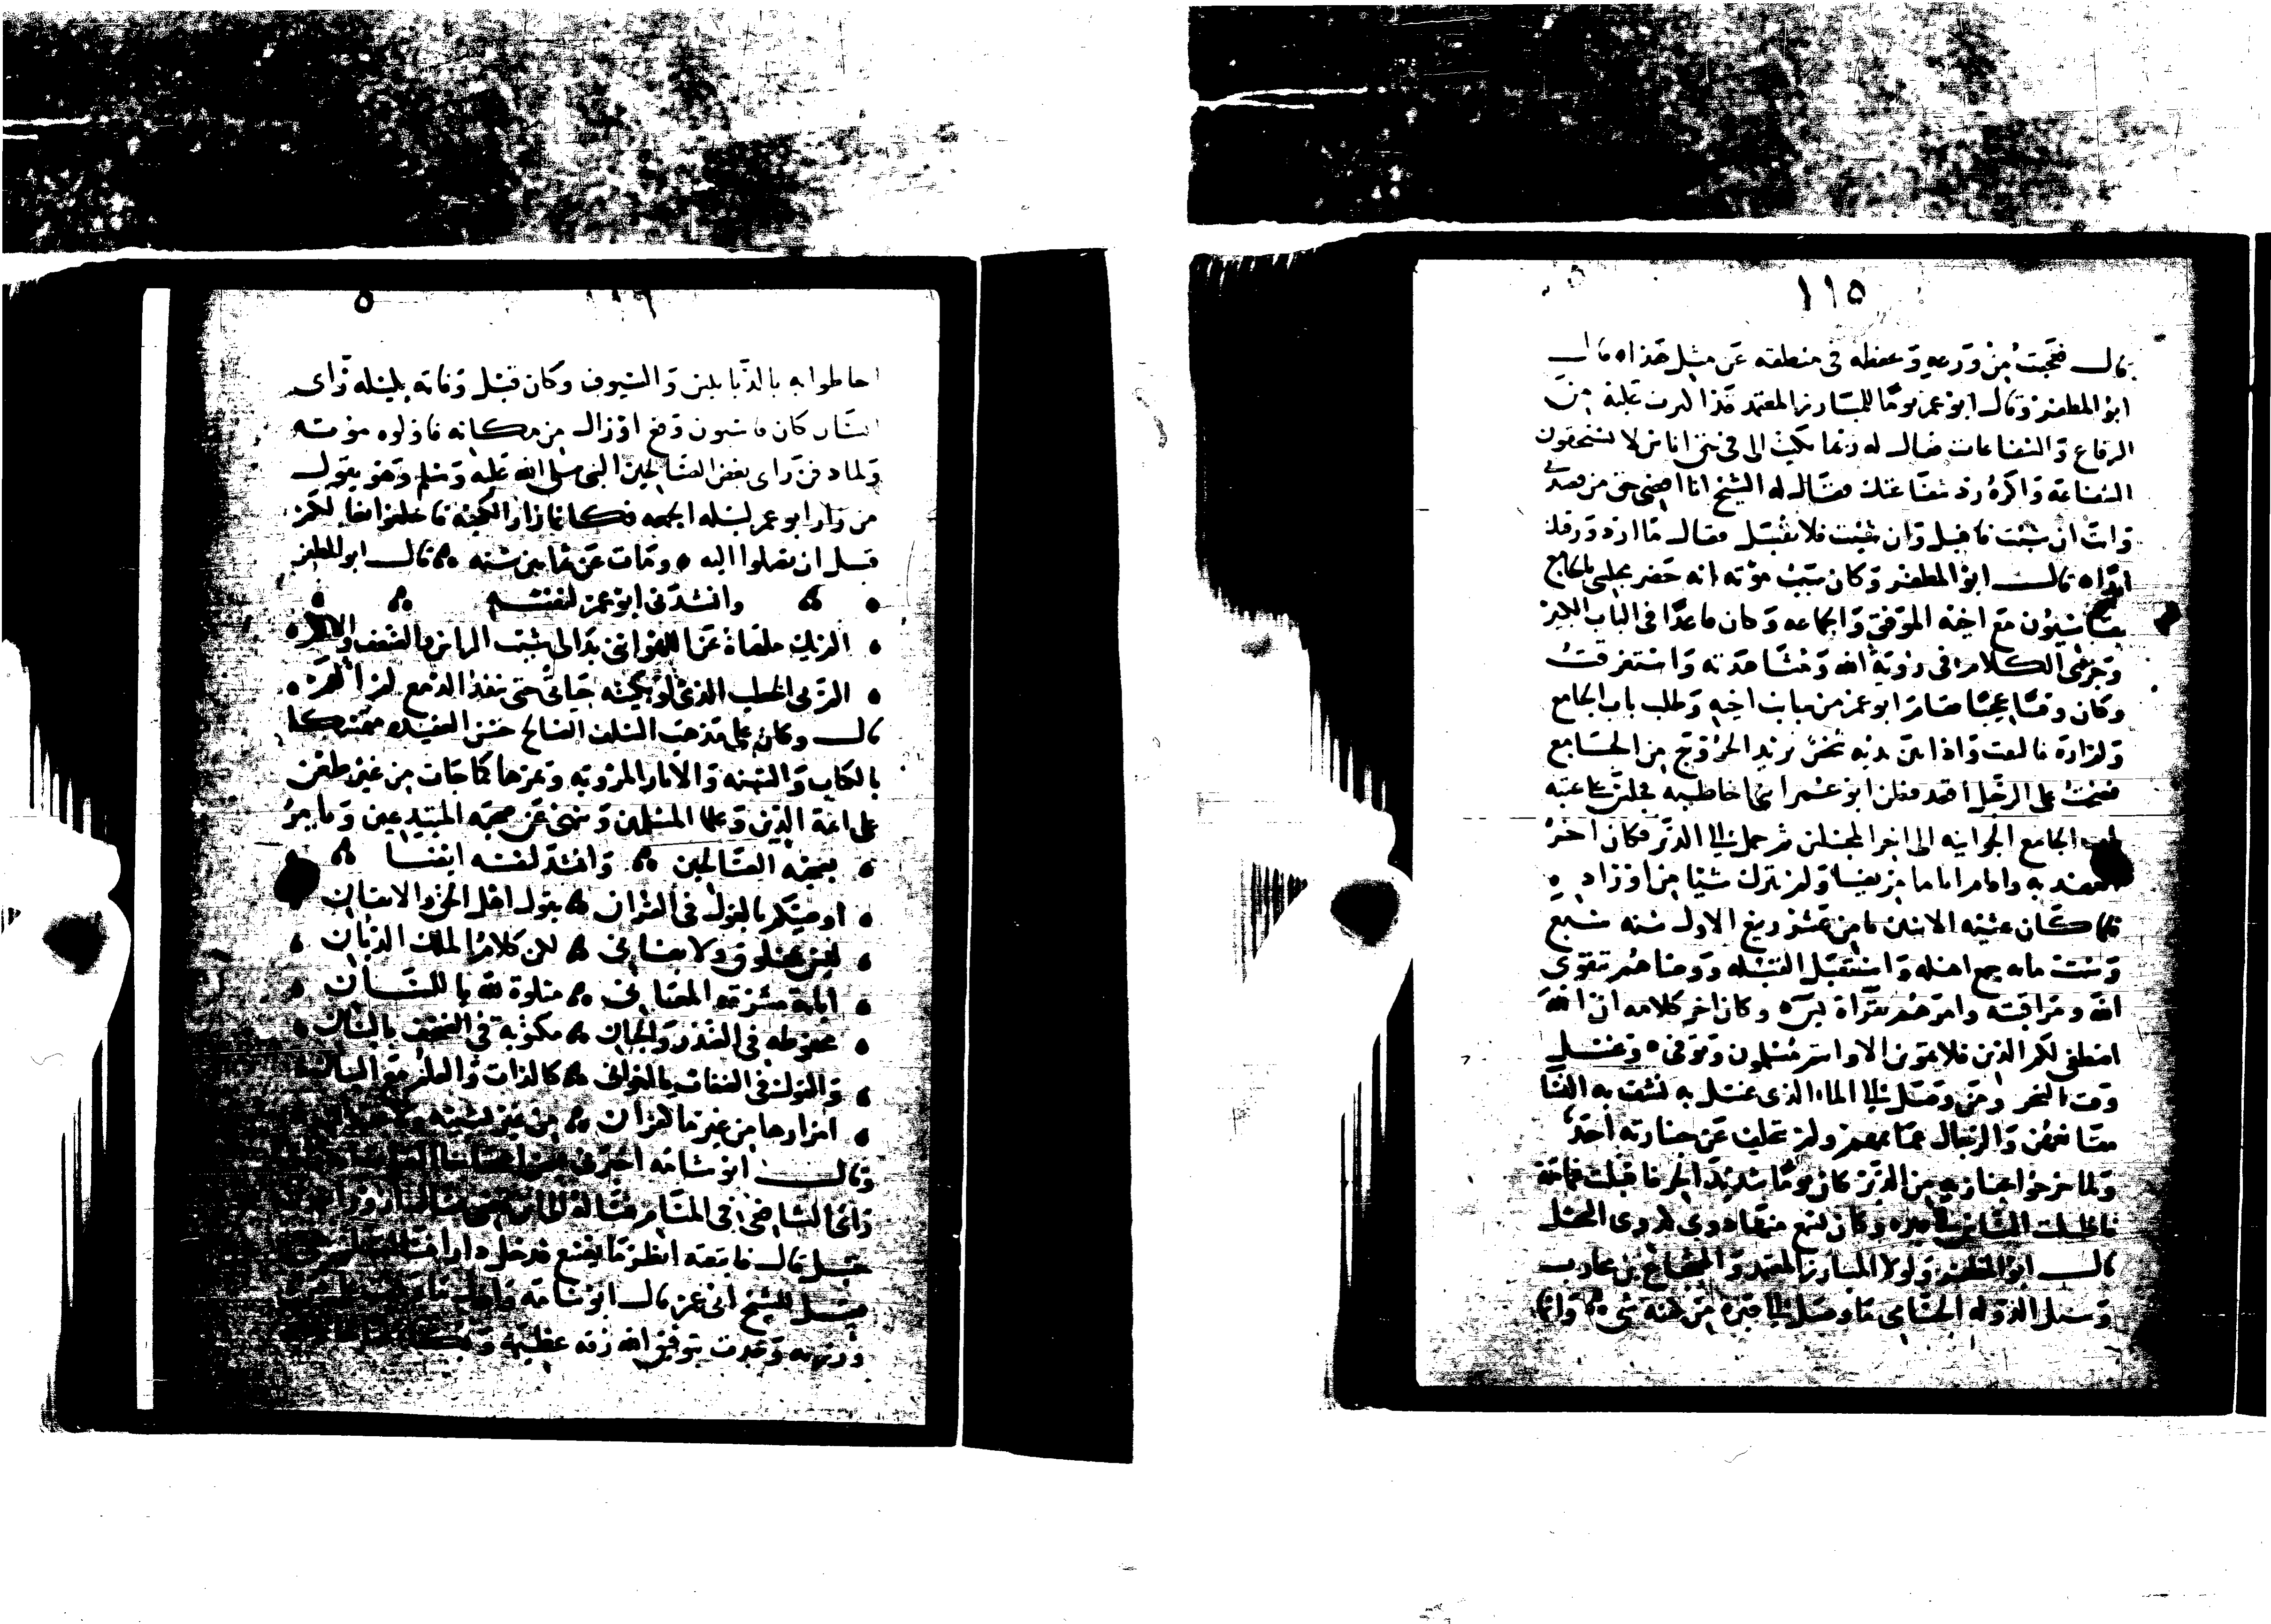 ١١٥
قال فعجبت من ورعه وحفظه في منطقه عن مثل هذا ه قال
ابو المظفر وقال ابو عمر يوما للمبارز المعتمد قد اكثرت عليك من
الرقاع والشفاعات فقال له ربما تكتب الى في حق اناس لا يستحقون
الشفاعة واكره رد شفاعتك فقال له الشيخ انا اقضي حق من قصدني
وانت ان شئت فاقبل وان شئت فلا تقبل فقال ما ارد ورقتك
ابدا ه قال ابو المظفر وكان سبب موته انه حضر مجلسي بالجامع
بقاسيون مع اخيه الموفق والجماعه وكان قاعدا في الباب الكبير
وجرى الكلام في رؤية الله ومشاهدته واستغرقت
وكان وقتا عجيبا فقام ابو عمر من جانب اخيه وطلب باب الجامع
ولم اره فالتفت واذا بين يديه شخص يريد الخروج من الجامع
فصحت على الرجل اقعد فظن ابو عمر انني اخاطبه فجلس على عتبة
باب الجامع الجوانيه الى اخر المجلس ثم حمل الى الدير فكان اخر
العهد به واقام اياما مريضا ولم يترك شيئا من اوراده
فلما كان عشية الاثنين ثامن عشر ربيع الاول سنه سبع
وستمائه جمع اهله واستقبل القبله ووصاهم بتقوى
الله ومراقبته وامرهم بقراة يس وكان اخر كلامه ان الله
اصطفى لكم الدين فلا تموتن الا وانتم مسلمون وتوفي ه وغسل
وقت السحر ومن وصل الى الماء الذي غسل به نشف به النسا
مقانعهن والرجال عمائمهم ولم يتخلف عن جنازته احد
ولما خرجوا بجنازته من الدير كان يوما شديد الحر فاقبلت غمامة
فاظلت الناس الى قبره وكان يسمع منها دوي كدوي النحل
قال ابو المظفر ولولا المبارز المعتمد والشجاع بن محارب
وشبل الدوله الحسامي ما وصل الى قبره من كفنه شي وانما
احاطوا به بالدبابيس والسيوف وكان قبل وفاته بليله راى
انسان كان قاسيون وقع او زال من مكانه فاولوه موته
ولما دفن راى بعض الصالحين النبي صلى الله عليه وسلم وهو يقول
من زار ابو عمر ليله الجمعه فكانما زار الكعبه فاخلعوا نعالكم
قبل ان تصلوا اليه ه ومات عن ثمانين سنه قال ابو المظفر
وانشدني ابو عمر لنفسه
الم يك ملهاة عن اللهو انني بدا لي شيب الراس والضعف والالم
الم بي الخطب الذي لو بكيته حياتي حتى ينفد الدمع لم الم
قال وكان على مذهب السلف الصالح حسن العقيده متمسكا
بالكتاب والسنه والاثار المرويه وتمرها كما جات من غير طعن
على ائمة الدين وعلما المسلمين وينهى عن صحبه المبتدعين ويامر
بصحبه الصالحين وانشد لنفسه ايضا
اوصيكم بالقول في القران بقول اهل الحق والاتقان
ليس بمخلوق ولا بفاني لكن كلام الملك الديان
اياته مشرقه المعاني متلوة لله باللسان
محفوظه في الصدر والجنان مكتوبة في الصحف بالبنان
والقول في الصفات يا اخواني كالذات والعلم مع البيان
امرارها من غير ما كفران من غير تشبيه
وقال ابو شامه اخبرني
راى الشافعي في المنام فساله
حنبل قال فاتبعته انظر ما يصنع فدخل دارا
فقيل للشيخ ابي عمر قال ابو شامه